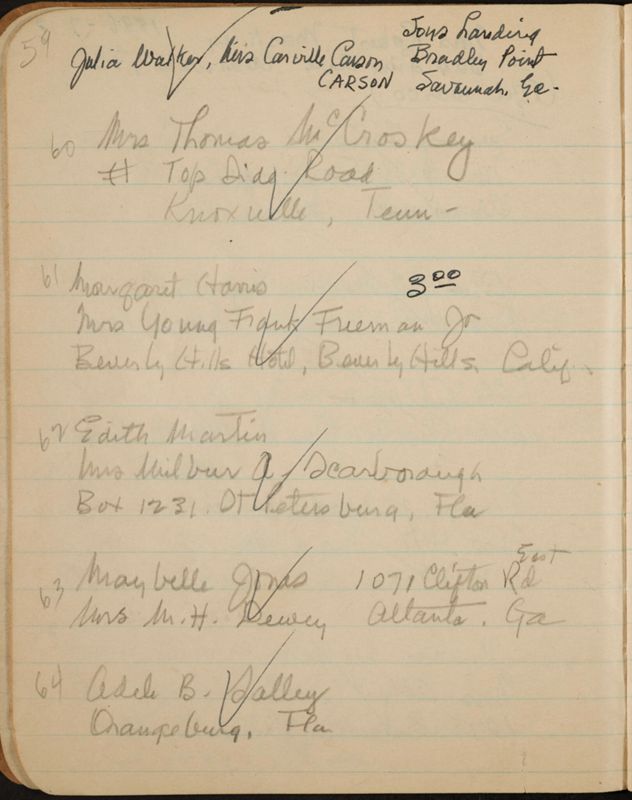 59 Julia Walker, Mrs Carville Carson
CARSON
Tons Landing
Bradley Point
Savannah, Ga-
60 Mrs Thomas McCroskey
# Top Side Road
Knoxville, Tenn-
61 Margaret Harris 3.00
Mrs Young Frank Freeman Jr
Beverly Hills Hotel, Beverly Hills Calif.
62 Edith Martin
Mrs Wilbur A. Scarborough
Box 1231. St Petersburg, Fla
63 Maybelle Jones 1071 Clifton Rd East
Mrs M. H. Dewey Atlanta. Ga
64 Adele B. Salley
Orangeburg, Fla